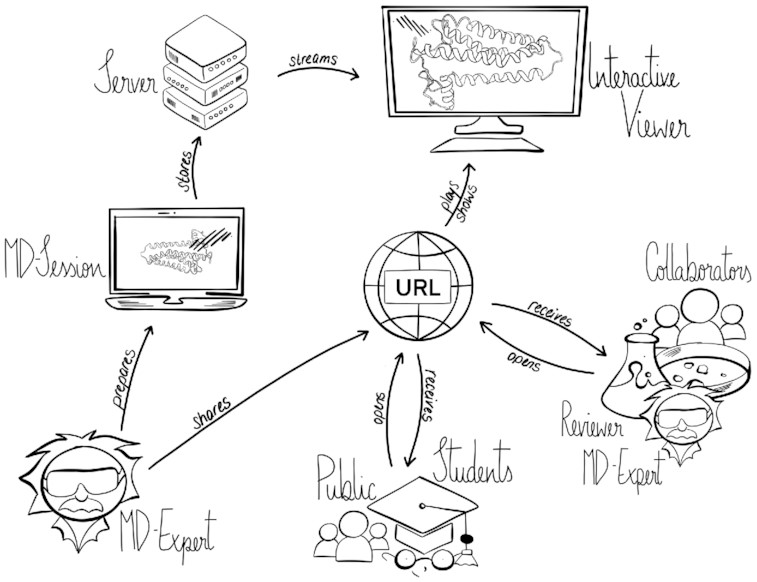 Server
streams
Interactive
Viewer
stores
MD-Session
plays
shows
URL
Collaborators
receives
opens
prepares
shares
opens
receives
Reviewer
MD-Expert
Public
Students
MD-Expert